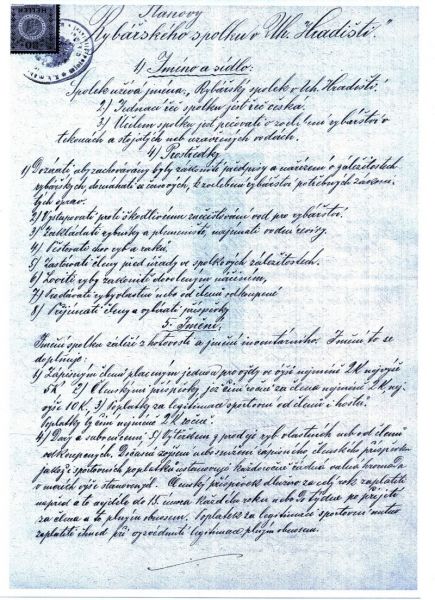 Stanovy
Rybářského spolku v Uh. Hradišti.
1) Jméno a sídlo:
Spolek užívá jména: „Rybářský spolek v Uh. Hradišti.
2) Jednací řeč spolku jest řeč česká.
3) Účelem spolku jest pečovati o zvelebení rybářství v
tekoucích a stojatých neb uzavřených vodách.
4) Prostředky
1) Dozírati aby zachovávány byly zákonité předpisy a nařízení v záležitostech
rybářských, domáhati a nových, k zvelebení rybářství potřebných zákoni-
tých oprav.
2) Vystupovati proti škodlivému znečisťování vod pro rybářství.
3) Zakládati rybníky a plemeniště, najímati vodní revíry.
4) Pěstovati chov ryb a raků.
5) Zastávati členy před úřady ve spolkových záležitostech.
6) Loviti ryby zákonitě dovoleným náčiním,
7) rybolovem nebo od členů odkoupené
8) Přijímati členy a vybírati příspěvky
5. Jmění.
Jmění spolku záleží z hotovosti a jmění inventárního. Jmění to se
doplňuje:
1) Zápisným členů placeným jednou pro vždy ve výši nejméně 2 K nejvýše
5 K 2) Členskými příspěvky, jež činí ročně za člena nejméně 2 K nej-
výše 10 K. 3) Poplatky za legitimace sportovní od členů i hostů.
Poplatky ty činí nejméně 2 K ročně.
4) Dary a subvencemi 5) Výtěžkem z prodeje ryb vlastních nebo od členů
odkoupených. zápisného členského příspěvku
jakož i sportovních poplatků ustanovuje každoročně řádná valná hromada
v mezích výše stanovených. Členský příspěvek dlužno za celý rok zaplatiti
napřed a to nejdéle do 15. února každého roku nebo do týdne po přijetí
za člena a to plným obnosem. Poplatek za legitimaci sportovní nutno
zaplatiti ihned při vyzvednutí legitimace plným obnosem.